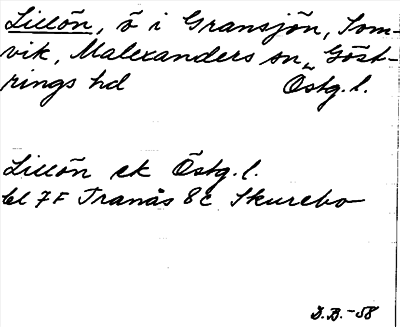 Lillön, ö i Gransjön, Som-
vik, Malexanders sn, Göst-
rings hd Östg.l.
Lillön ek Östg.l.
bl 7F Tranås 8c Skurebo
D.B.-58